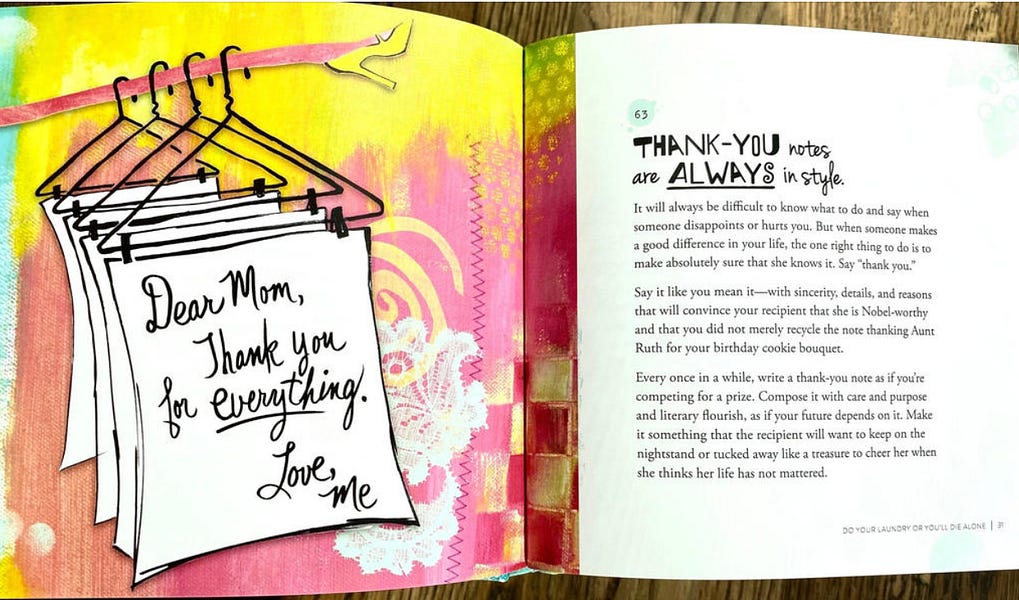 Dear Mom,
Thank you
for everything.
Love,
me
63
THANK-YOU notes
are ALWAYS in style.
It will always be difficult to know what to do and say when
someone disappoints or hurts you. But when someone makes
a good difference in your life, the one right thing to do is to
make absolutely sure that she knows it. Say “thank you.”
Say it like you mean it—with sincerity, details, and reasons
that will convince your recipient that she is Nobel-worthy
and that you did not merely recycle the note thanking Aunt
Ruth for your birthday cookie bouquet.
Every once in a while, write a thank-you note as if you’re
competing for a prize. Compose it with care and purpose
and literary flourish, as if your future depends on it. Make
it something that the recipient will want to keep on the
nightstand or tucked away like a treasure to cheer her when
she thinks her life has not mattered.
DO YOUR LAUNDRY OR YOU'LL DIE ALONE | 31